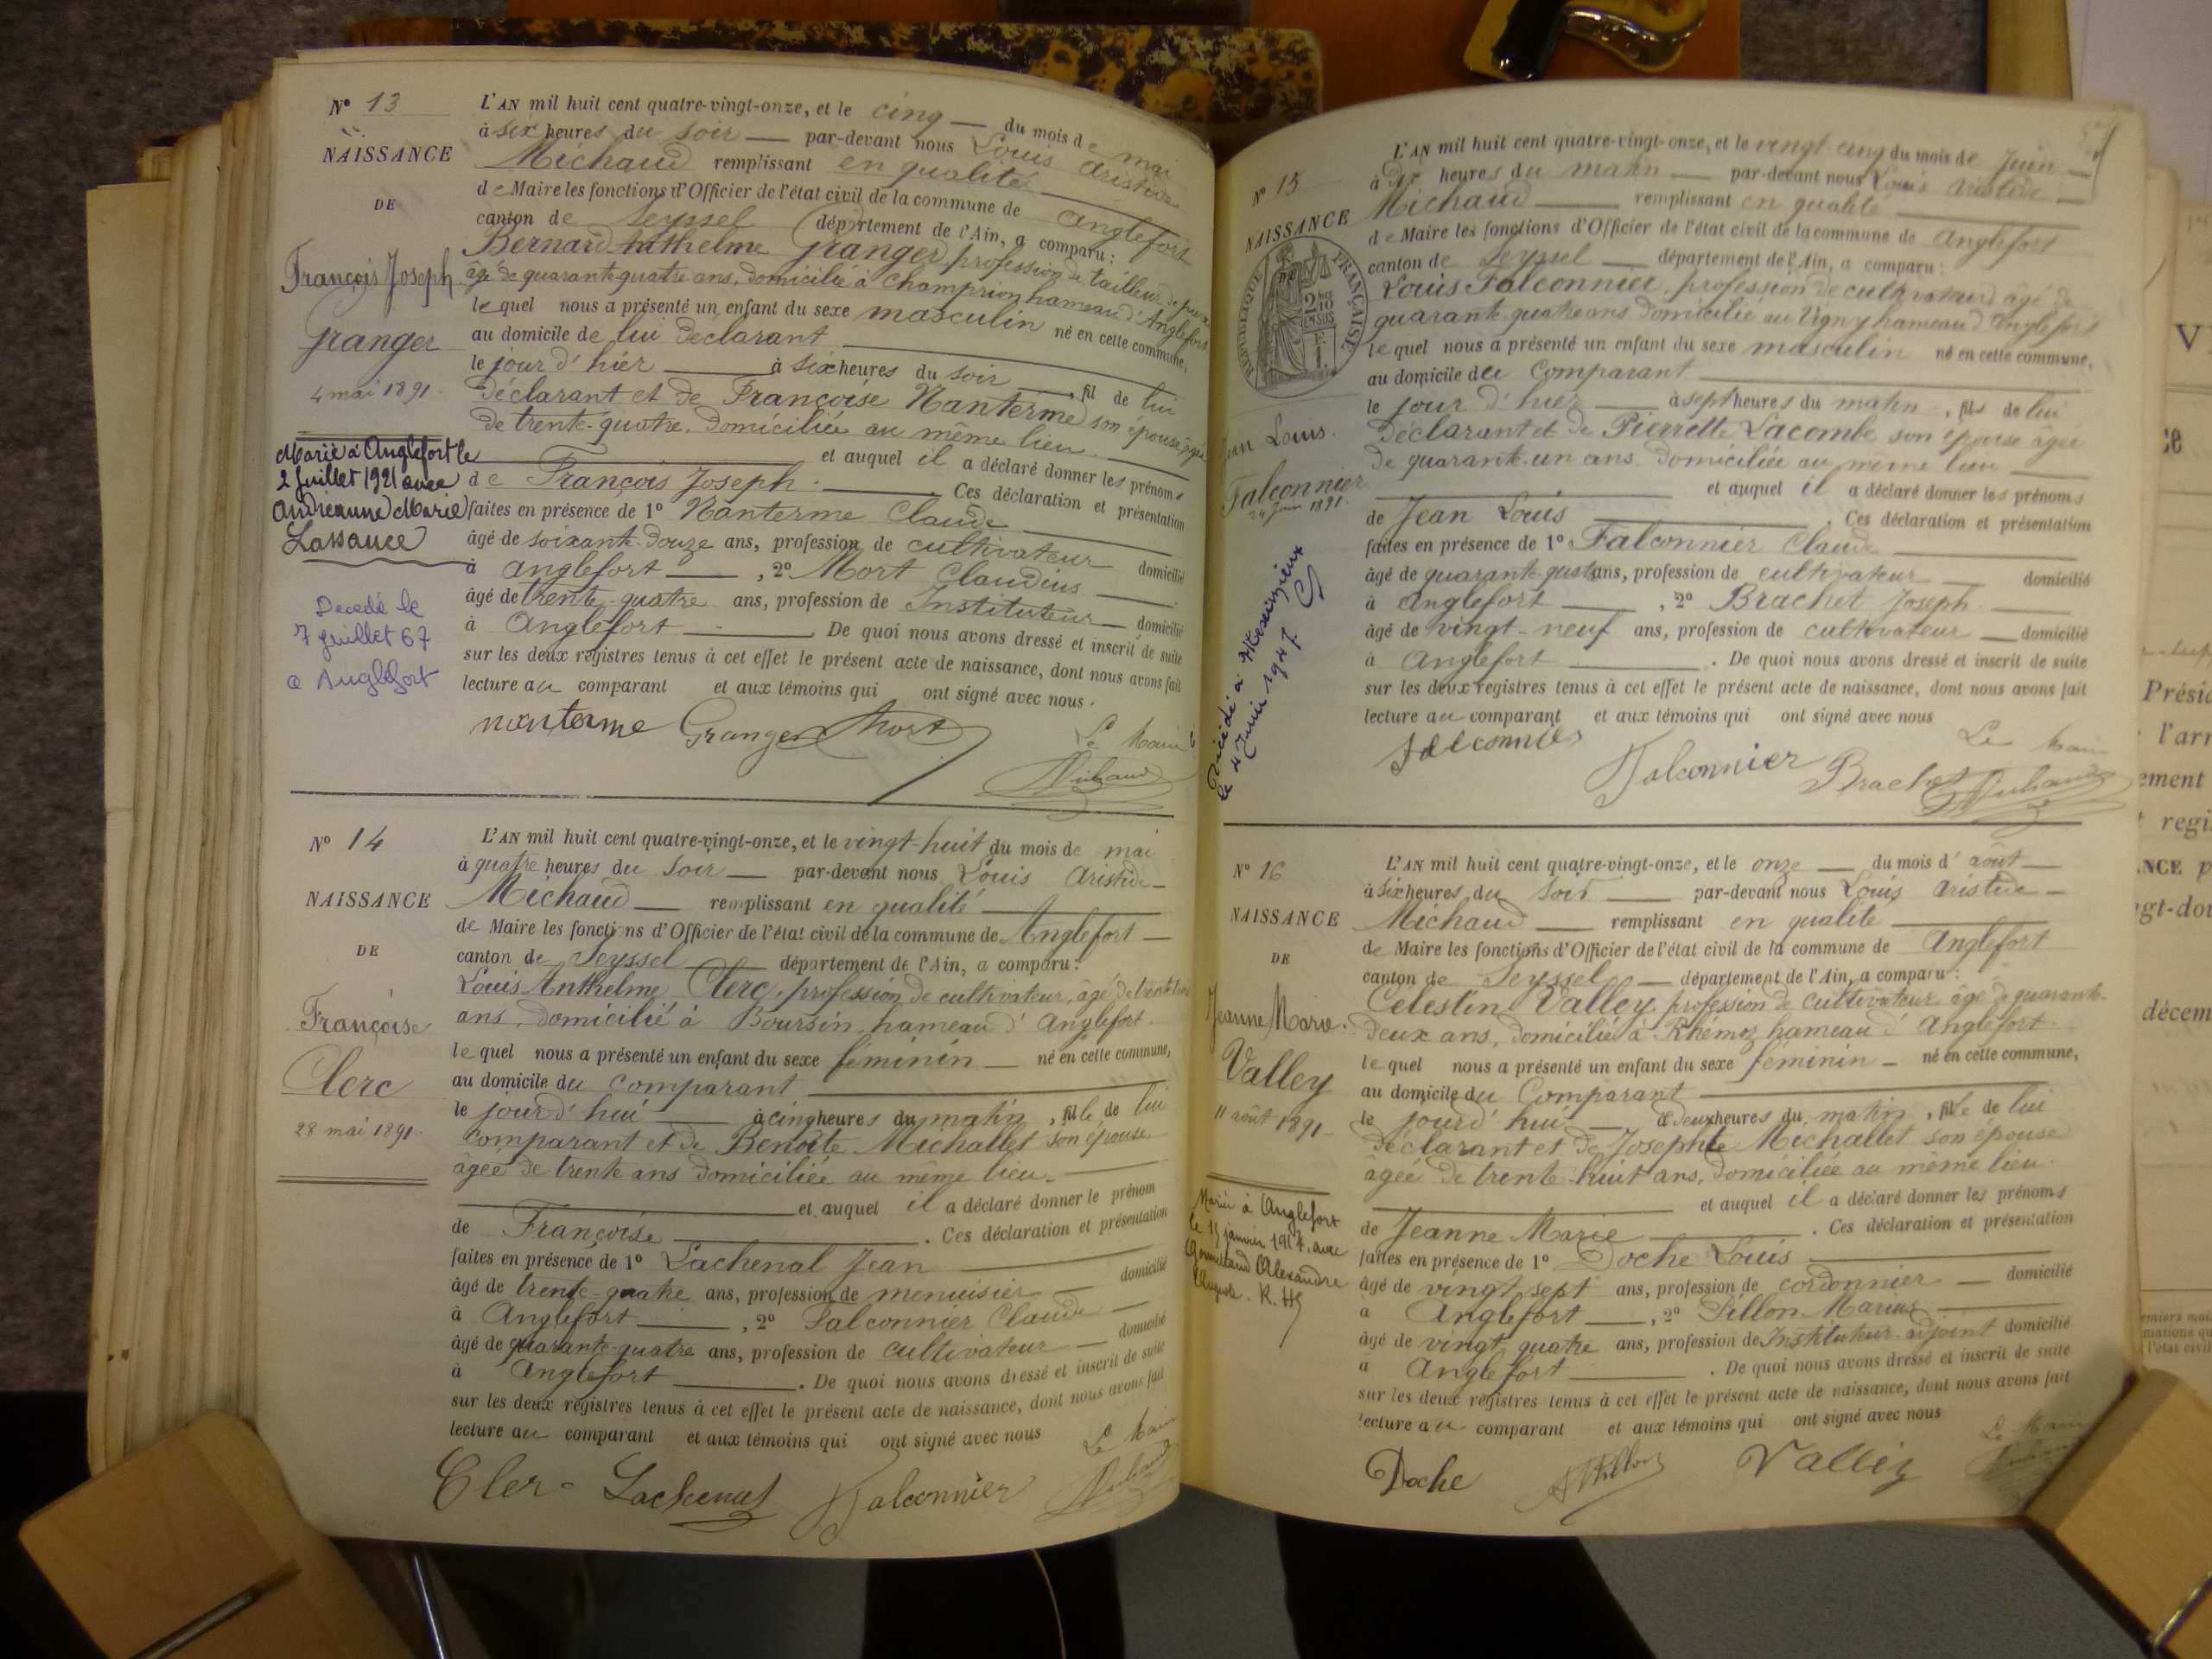 N° 13
NAISSANCE
DE
François Joseph
Granger
4 mai 1891.
Marié à Anglefort le
2 Juillet 1921 avec
Andréanne Marie
Lassauce
Decedé le
7 juillet 67
a Anglefort
L'AN mil huit cent quatre-vingt-onze, et le cinq du mois de mai
à six heures du soir par-devant nous Louis Aristide
Michaud remplissant en qualité
de Maire les fonctions d'Officier de l'état civil de la commune de Anglefort
canton de Seyssel département de l'Ain, a comparu :
Bernard Anthelme Granger, profession de tailleur de
âgé de quarante-quatre ans, domicilié à Champrion hameau d'Anglefort
lequel nous a présenté un enfant du sexe masculin né en cette commune,
au domicile de lui déclarant
le jour d'hier à six heures du soir, fil de lui
déclarant et de Françoise Nanterme son épouse âgée
de trente-quatre. domiciliée au même lieu.
et auquel il a déclaré donner les prénoms
de François Joseph. Ces déclaration et présentation
faites en présence de 1° Nanterme Claude
âgé de soixante-douze ans, profession de cultivateur domicilié
à Anglefort, 2° Mort Claudius
âgé de trente-quatre ans, profession de Instituteur domicilié
à Anglefort. De quoi nous avons dressé et inscrit de suite
sur les deux registres tenus à cet effet le présent acte de naissance, dont nous avons fait
lecture au comparant et aux témoins qui ont signé avec nous.
nanterme Granger Mort Le Maire
Michaud
N° 14
NAISSANCE
DE
Françoise
Clerc
28 mai 1891.
L'AN mil huit cent quatre-vingt-onze, et le vingt-huit du mois de mai
à quatre heures du soir par-devant nous Louis Aristide
Michaud remplissant en qualité
de Maire les fonctions d'Officier de l'état civil de la commune de Anglefort
canton de Seyssel département de l'Ain, a comparu :
Louis Anthelme Clerc, profession de cultivateur, âgé de
ans, domicilié à Boursin hameau d'Anglefort.
lequel nous a présenté un enfant du sexe féminin né en cette commune,
au domicile du comparant
le jour d'hui à cinq heures du matin, fille de lui
comparant et de Benoîte Michallet son épouse,
âgée de trente ans domiciliée au même lieu.
et auquel il a déclaré donner le prénom
de Françoise. Ces déclaration et présentation
faites en présence de 1° Lachenal Jean
âgé de trente-quatre ans, profession de menuisier domicilié
à Anglefort, 2° Falconnier Claude
âgé de quarante-quatre ans, profession de cultivateur domicilié
à Anglefort. De quoi nous avons dressé et inscrit de suite
sur les deux registres tenus à cet effet le présent acte de naissance, dont nous avons fait
lecture au comparant et aux témoins qui ont signé avec nous
Clerc Lachenal Falconnier Le Maire
Michaud
N° 15
NAISSANCE
RÉPUBLIQUE FRANÇAISE
Jean Louis.
Falconnier
24 Juin 1891.
Décédé à Meximieux
le 4 Juin 1947
L'AN mil huit cent quatre-vingt-onze, et le vingt-cinq du mois de Juin
à dix heures du matin par-devant nous Louis Aristide
Michaud remplissant en qualité
de Maire les fonctions d'Officier de l'état civil de la commune de Anglefort
canton de Seyssel département de l'Ain, a comparu :
Louis Falconnier, profession de cultivateur âgé de
quarante-quatre ans domicilié au Vigny hameau d'Anglefort
lequel nous a présenté un enfant du sexe masculin né en cette commune,
au domicile du Comparant
le jour d'hier à sept heures du matin, fils de lui
déclarant et de Pierrette Lacombe son épouse âgée
de quarante-un ans. domiciliée au même lieu
et auquel il a déclaré donner les prénoms
de Jean Louis. Ces déclaration et présentation
faites en présence de 1° Falconnier Claude
âgé de quarante-quatre ans, profession de cultivateur domicilié
à Anglefort, 2° Brachet Joseph
âgé de vingt-neuf ans, profession de cultivateur domicilié
à Anglefort. De quoi nous avons dressé et inscrit de suite
sur les deux registres tenus à cet effet le présent acte de naissance, dont nous avons fait
lecture au comparant et aux témoins qui ont signé avec nous
Falconnier Falconnier Brachet Le Maire
Michaud
N° 16
NAISSANCE
DE
Jeanne Marie.
Valley
11 août 1891.
Mariée à Anglefort
le 15 janvier 1914 avec
Alexandre
L'AN mil huit cent quatre-vingt-onze, et le onze du mois d'août
à six heures du soir par-devant nous Louis Aristide
Michaud remplissant en qualité
de Maire les fonctions d'Officier de l'état civil de la commune de Anglefort
canton de Seyssel département de l'Ain, a comparu :
Celestin Valley, profession de cultivateur âgé de quarante-
deux ans, domicilié à Rhémoz hameau d'Anglefort.
lequel nous a présenté un enfant du sexe féminin né en cette commune,
au domicile du Comparant
le jourd'hui à deux heures du matin, fille de lui
déclarant et de Josephte Michallet son épouse
âgée de trente-huit ans, domiciliée au même lieu.
et auquel il a déclaré donner les prénoms
de Jeanne Marie. Ces déclaration et présentation
faites en présence de 1° Doche Louis
âgé de vingt sept ans, profession de cordonnier domicilié
à Anglefort, 2° Sillon Marius
âgé de vingt quatre ans, profession de Instituteur-adjoint domicilié
à Anglefort. De quoi nous avons dressé et inscrit de suite
sur les deux registres tenus à cet effet le présent acte de naissance, dont nous avons fait
lecture au comparant et aux témoins qui ont signé avec nous
Doche Sillon Valley Le Maire